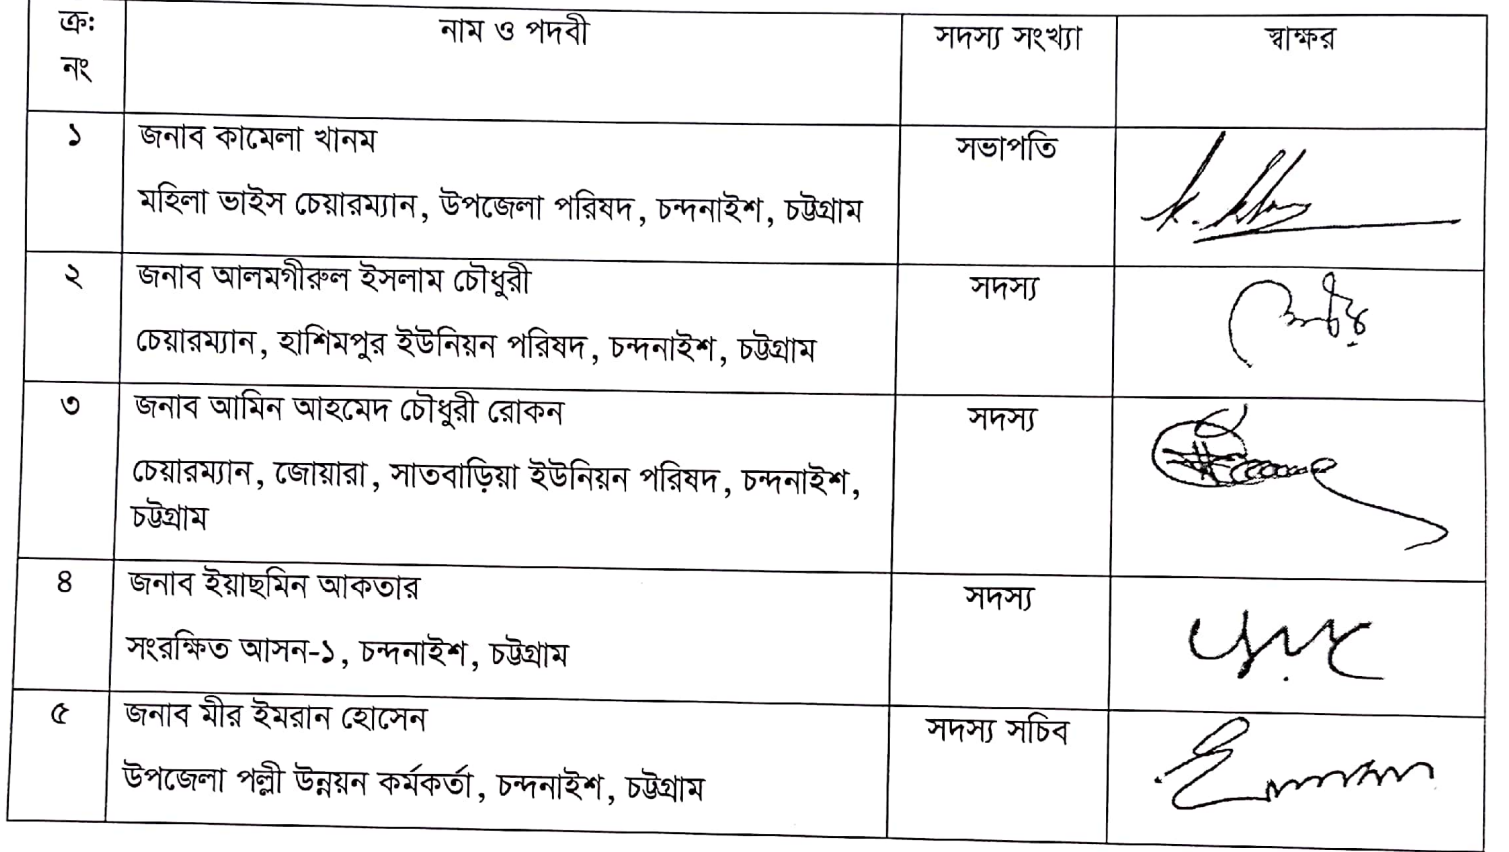 ক্র: নাম ও পদবী সদস্য সংখ্যা স্বাক্ষর
নং
১ জনাব কামেলা খানম সভাপতি
মহিলা ভাইস চেয়ারম্যান, উপজেলা পরিষদ, চন্দনাইশ, চট্টগ্রাম
২ জনাব আলমগীরুল ইসলাম চৌধুরী সদস্য
চেয়ারম্যান, হাশিমপুর ইউনিয়ন পরিষদ, চন্দনাইশ, চট্টগ্রাম
৩ জনাব আমিন আহমেদ চৌধুরী রোকন সদস্য
চেয়ারম্যান, জোয়ারা, সাতবাড়িয়া ইউনিয়ন পরিষদ, চন্দনাইশ,
চট্টগ্রাম
৪ জনাব ইয়াছমিন আকতার সদস্য
সংরক্ষিত আসন-১, চন্দনাইশ, চট্টগ্রাম
৫ জনাব মীর ইমরান হোসেন সদস্য সচিব
উপজেলা পল্লী উন্নয়ন কর্মকর্তা, চন্দনাইশ, চট্টগ্রাম